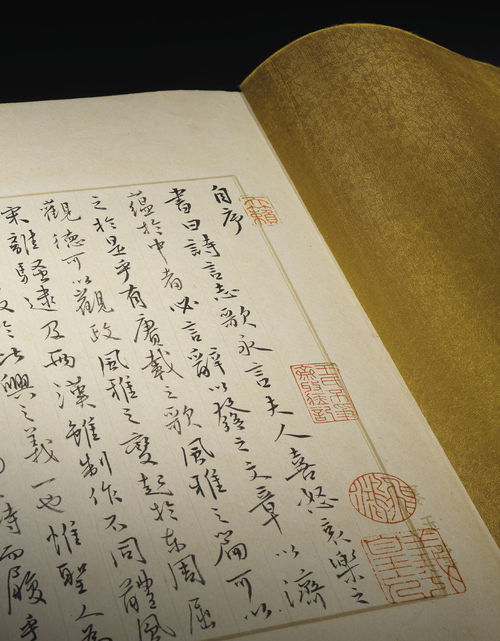 自序
書曰詩言志歌永言夫人喜怒哀樂之
蘊於中者必言辭以發之文章以濟
之於是乎有賡載之歌風雅之篇可以
觀德可以觀政風雅之變起於東周屈
宋離騷逮及兩漢雖制作不同體風
於比興之義一也惟聖人為
詩而履乎